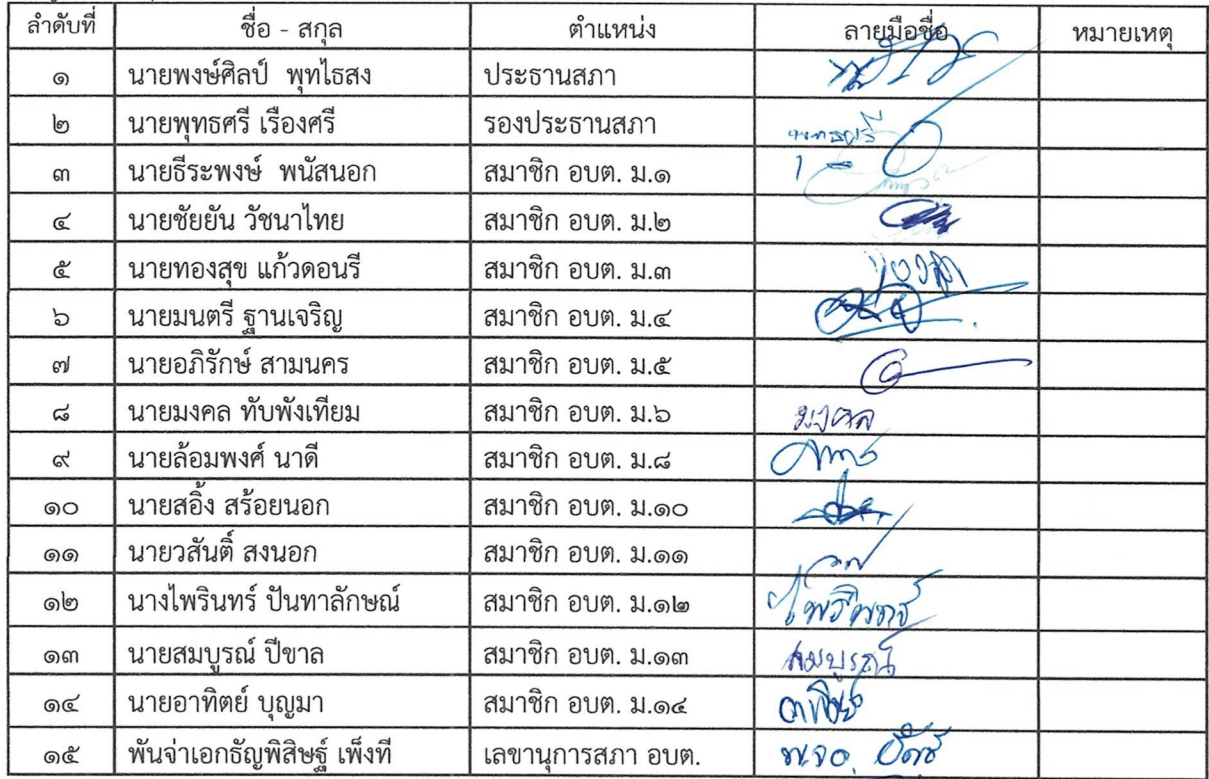 ลำดับที่ ชื่อ - สกุล ตำแหน่ง ลายมือชื่อ หมายเหตุ
๑ นายพงษ์ศิลป์ พุทไธสง ประธานสภา
๒ นายพุทธศรี เรืองศรี รองประธานสภา พุทธศรี
๓ นายธีระพงษ์ พนัสนอก สมาชิก อบต. ม.๑
๔ นายชัยยัน วัชนาไทย สมาชิก อบต. ม.๒
๕ นายทองสุข แก้วดอนรี สมาชิก อบต. ม.๓
๖ นายมนตรี ฐานเจริญ สมาชิก อบต. ม.๔
๗ นายอภิรักษ์ สามนคร สมาชิก อบต. ม.๕
๘ นายมงคล ทับพังเทียม สมาชิก อบต. ม.๖ มงคล
๙ นายล้อมพงศ์ นาดี สมาชิก อบต. ม.๘
๑๐ นายสอิ้ง สร้อยนอก สมาชิก อบต. ม.๑๐
๑๑ นายวสันติ์ สงนอก สมาชิก อบต. ม.๑๑
๑๒ นางไพรินทร์ ปันทาลักษณ์ สมาชิก อบต. ม.๑๒ ไพรินทร์
๑๓ นายสมบูรณ์ ปีขาล สมาชิก อบต. ม.๑๓ สมบูรณ์
๑๔ นายอาทิตย์ บุญมา สมาชิก อบต. ม.๑๔
๑๕ พันจ่าเอกธัญพิสิษฐ์ เพ็งที เลขานุการสภา อบต. พ.จ.อ.